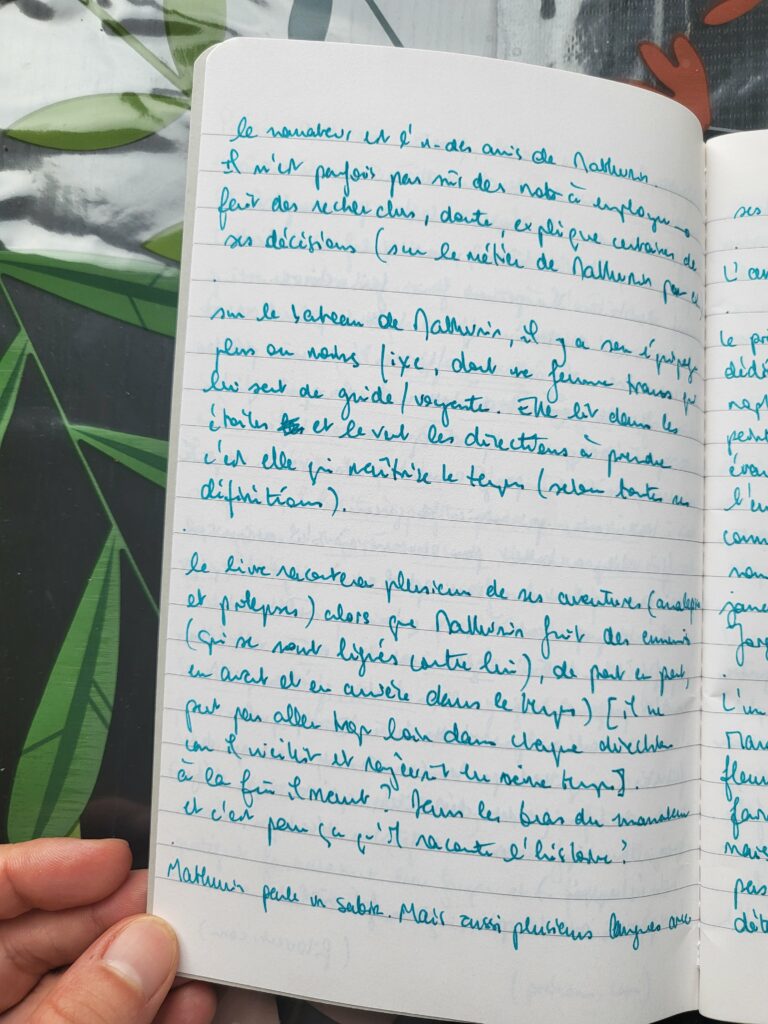 le narrateur est l'un des amis de Mathurin.
Il n'est parfois pas sûr des mots à employer
fait des recherches, doute, explique certaines de
ses décisions (sur le métier de Mathurin par ex
sur le bateau de Mathurin, il y a son équipage
plus ou moins fixe, dont une femme trans qui
lui sert de guide/voyante. Elle lit dans les
étoiles et le vent les directions à prendre
c'est elle qui maîtrise le temps (selon toutes ses
définitions).
le livre racontera plusieurs de ses aventures (analepses
et prolepses) alors que Mathurin fuit des ennemis
(qui se sont ligués contre lui), de port en port,
en avant et en arrière dans le temps) [il ne
peut pas aller trop loin dans chaque direction
car il vieillit et rajeunit en même temps].
à la fin il meurt? Dans les bras du narrateur
et c'est pour ça qu'il raconte l'histoire?
Mathurin parle un sabir. Mais aussi plusieurs langues avec
ses
L'
le
l'en
L'un
fleur
mais
pas